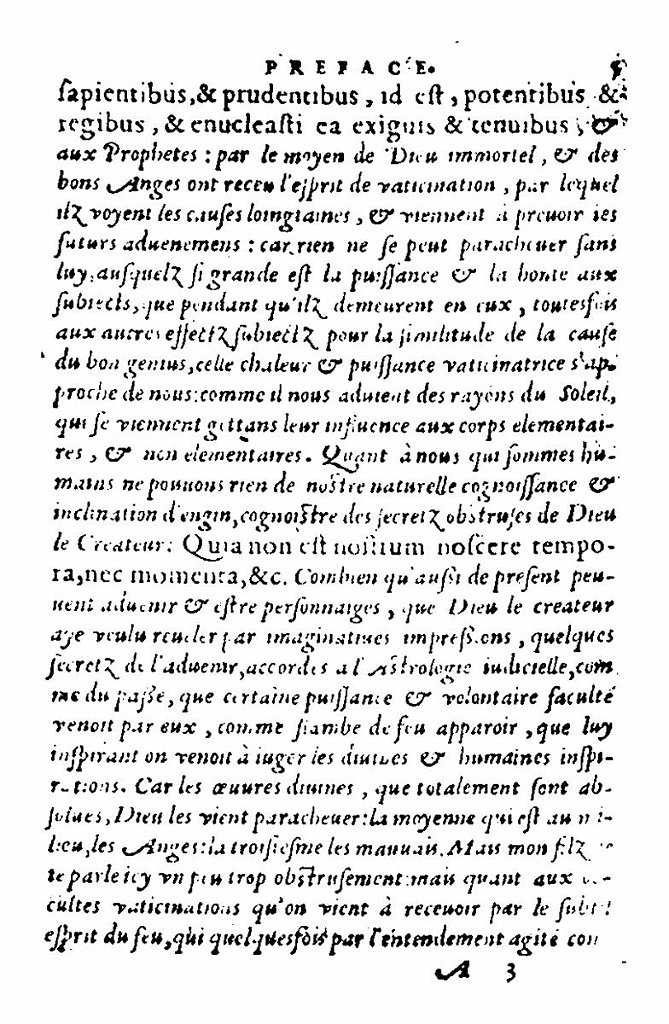 PREFACE. 5
ſapientibus, & prudentibus, id eſt, potentibus &
regibus, & enucleaſti ea exiguis & tenuibus, &
aux Prophetes: par le moyen de Dieu immortel, & des
bons Anges ont receu l'eſprit de vaticination, par lequel
ilz voyent les cauſes loingtaines, & viennent à preuoir les
futurs aduenemens: car rien ne ſe peut paracheuer ſans
luy, auſquelz ſi grande eſt la puiſſance & la bonte aux
ſubiects, que pendant qu'ilz demeurent en eux, toutesfois
aux autres effectz ſubiectz pour la ſimilitude de la cauſe
du bon genius, celle chaleur & puiſſance vaticinatrice s'ap-
proche de nous: comme il nous aduient des rayons du Soleil,
qui ſe viennent gettans leur influence aux corps elementai-
res, & non elementaires. Quant à nous qui ſommes hu-
mains ne pouuons rien de noſtre naturelle cognoiſſance &
inclination d'engin, cognoiſtre des ſecretz obſtruſes de Dieu
le Createur: Quia non eſt noſtrum noſcere tempo-
ra, nec momenta, &c. Combien qu'auſsi de preſent peu-
uent aduenir & eſtre perſonnaiges, que Dieu le createur
aye voulu reueler par imaginatiues impreſsions, quelques
ſecretz de l'aduenir, accordés a l'Aſtrologie iudicielle, com
me du paſſé, que certaine puiſſance & volontaire faculté
venoit par eux, comme flambe de feu apparoir, que luy
inſpirant on venoit à iuger les diuines & humaines inſpi-
rations. Car les œuures diuines, que totalement ſont ab-
ſolues, Dieu les vient paracheuer: la moyenne qui eſt au mi-
lieu, les Anges: la troiſieſme les mauuais. Mais mon filz
te parle icy vn peu trop obſtruſement: mais quant aux oc-
cultes vaticinations qu'on vient à receuoir par le ſubtil
eſprit du feu, qui quelquesfois par l'entendement agité con
A 3